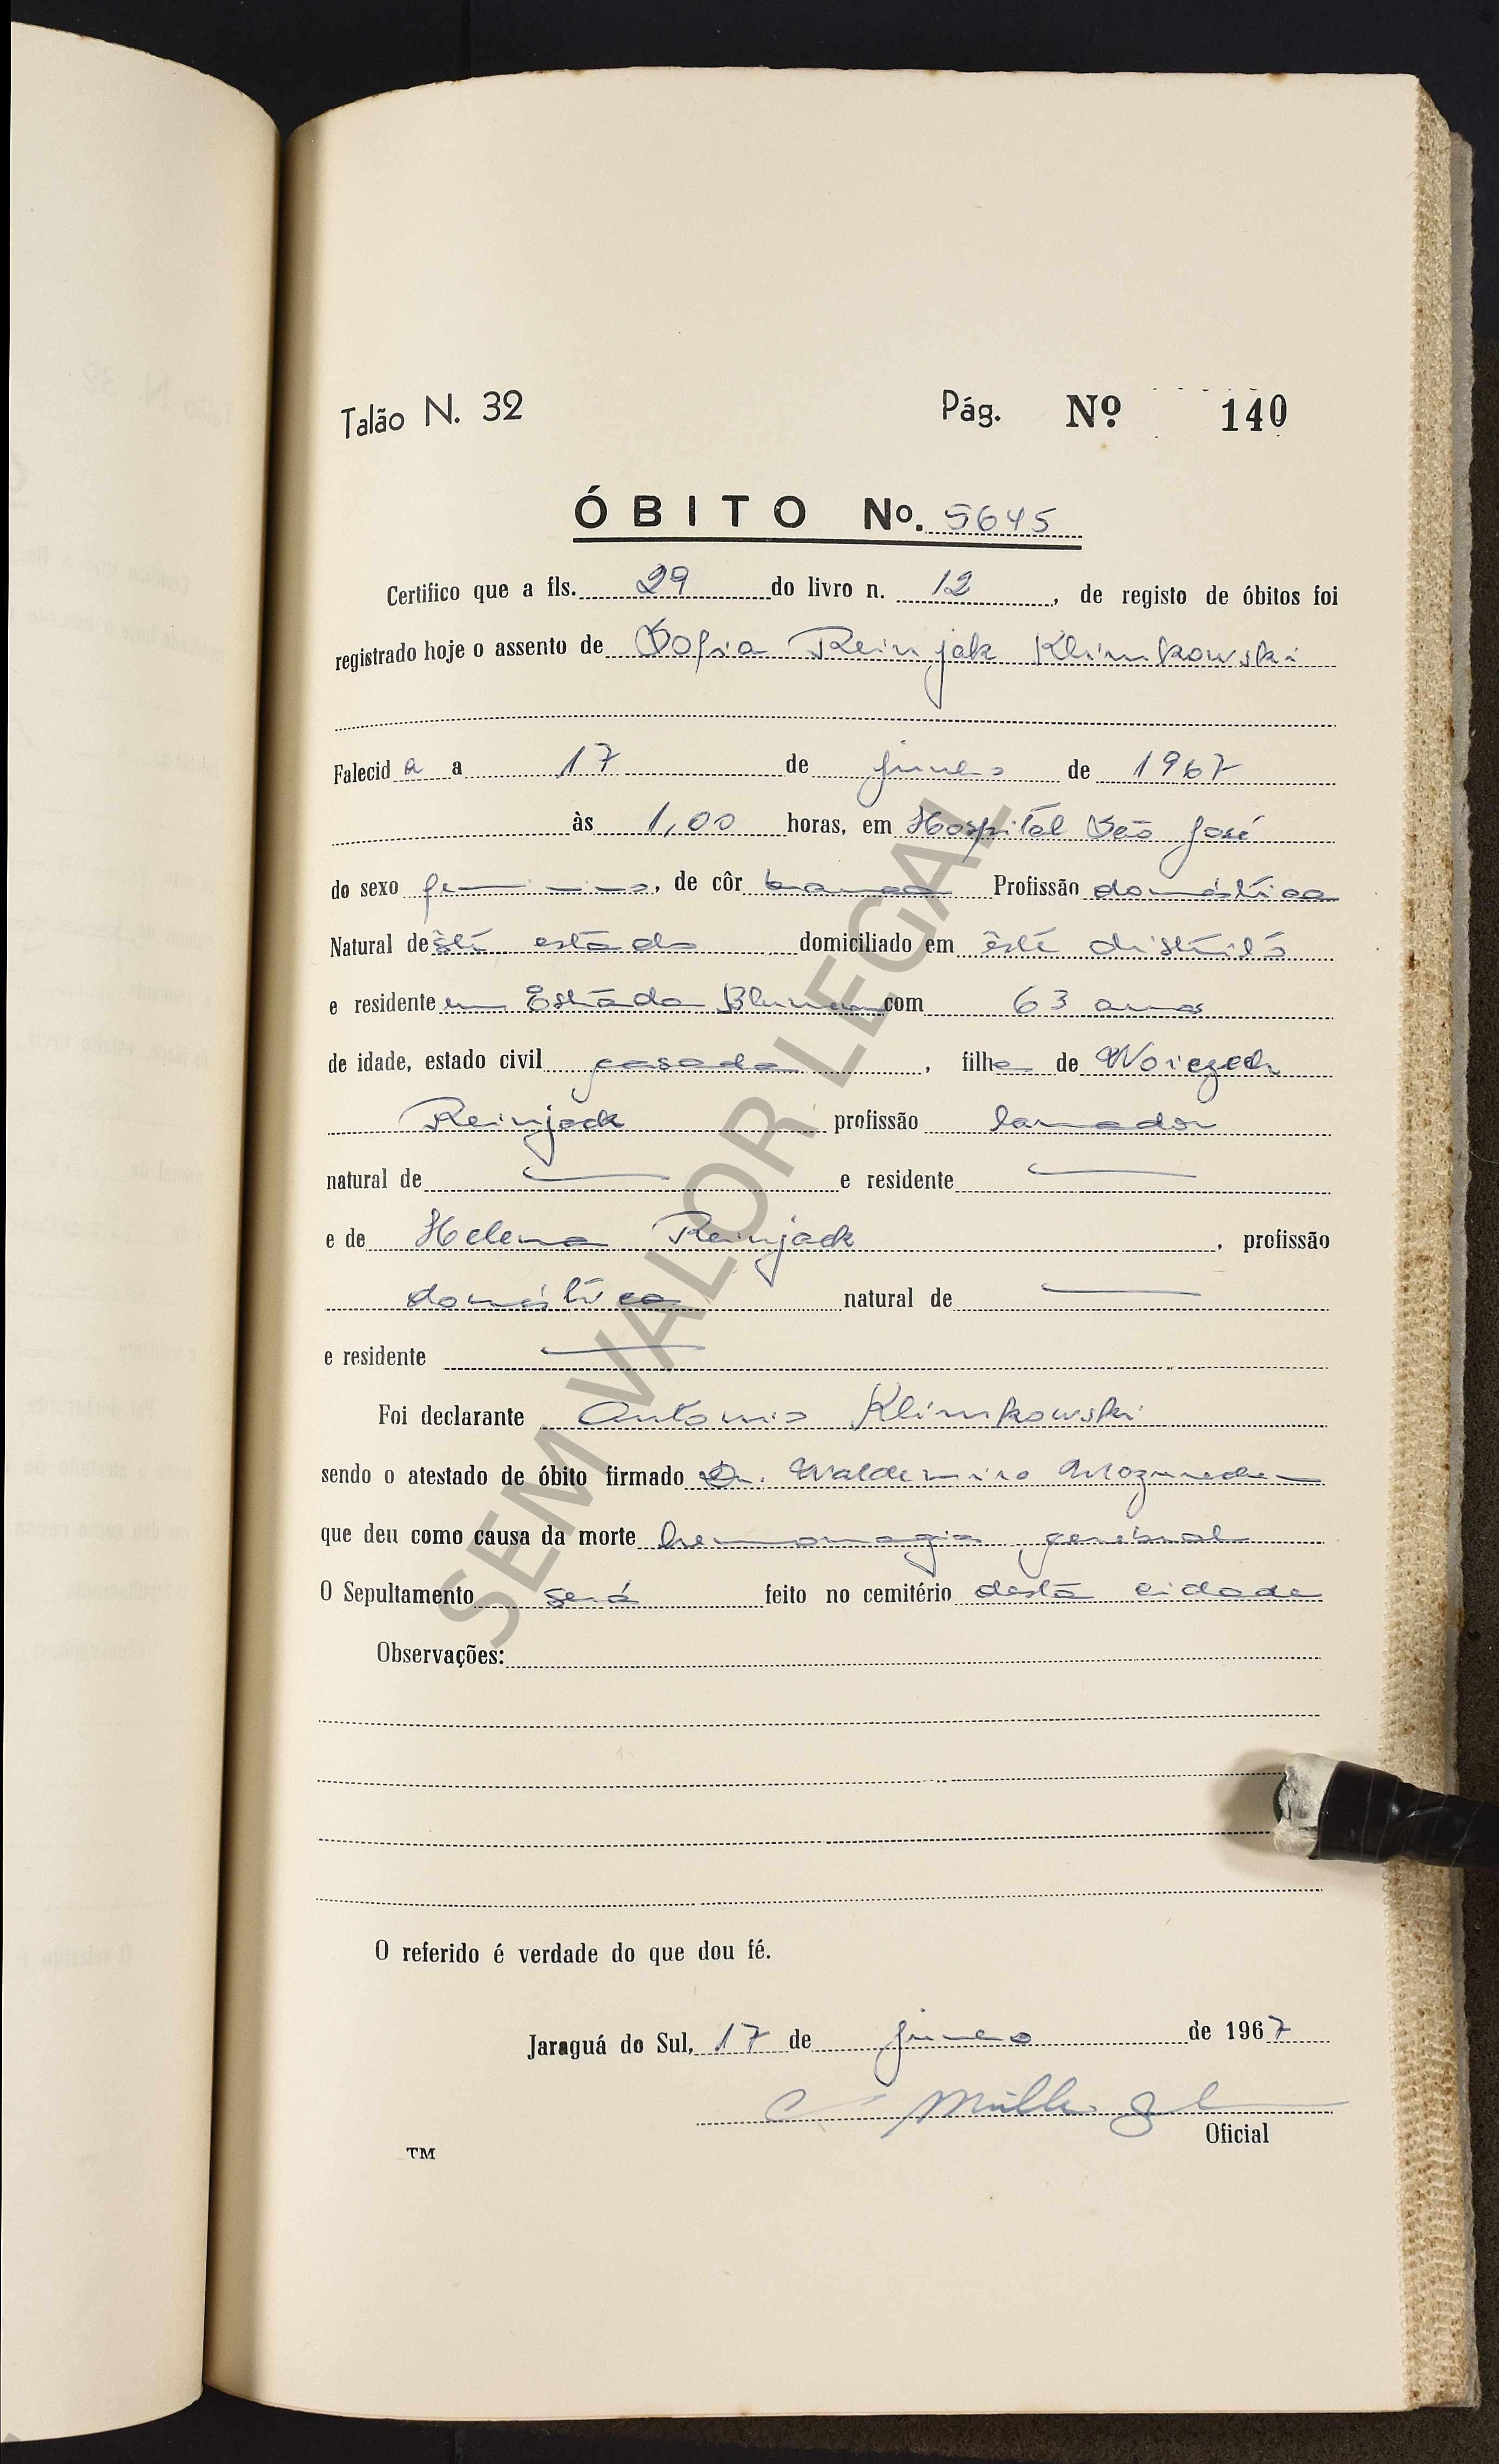 Talão N. 32 Pág. Nº 140
ÓBITO Nº. 5645
Certifico que a fls. 29 do livro n. 12, de registo de óbitos foi
registrado hoje o assento de Sofia Reinjak Klimkowski
Falecid a a 17 de junho de 1967
às 1,00 horas, em Hospitál São José
do sexo feminino, de côr branca Profissão doméstica
Natural de êste estado domiciliado em êste distrito
e residente em Estrada Blumenau com 63 anos
de idade, estado civil casada, filha de Woiczech
Reinjack profissão lavrador
natural de — e residente —
e de Helena Reinjack, profissão
doméstica natural de —
e residente —
Foi declarante Antonio Klimkowski
sendo o atestado de óbito firmado Dr. Waldemiro
que deu como causa da morte hemorragia cerebral
O Sepultamento será feito no cemitério desta cidade
Observações:
O referido é verdade do que dou fé.
Jaraguá do Sul, 17 de junho de 1967
Oficial
TM
SEM VALOR LEGAL